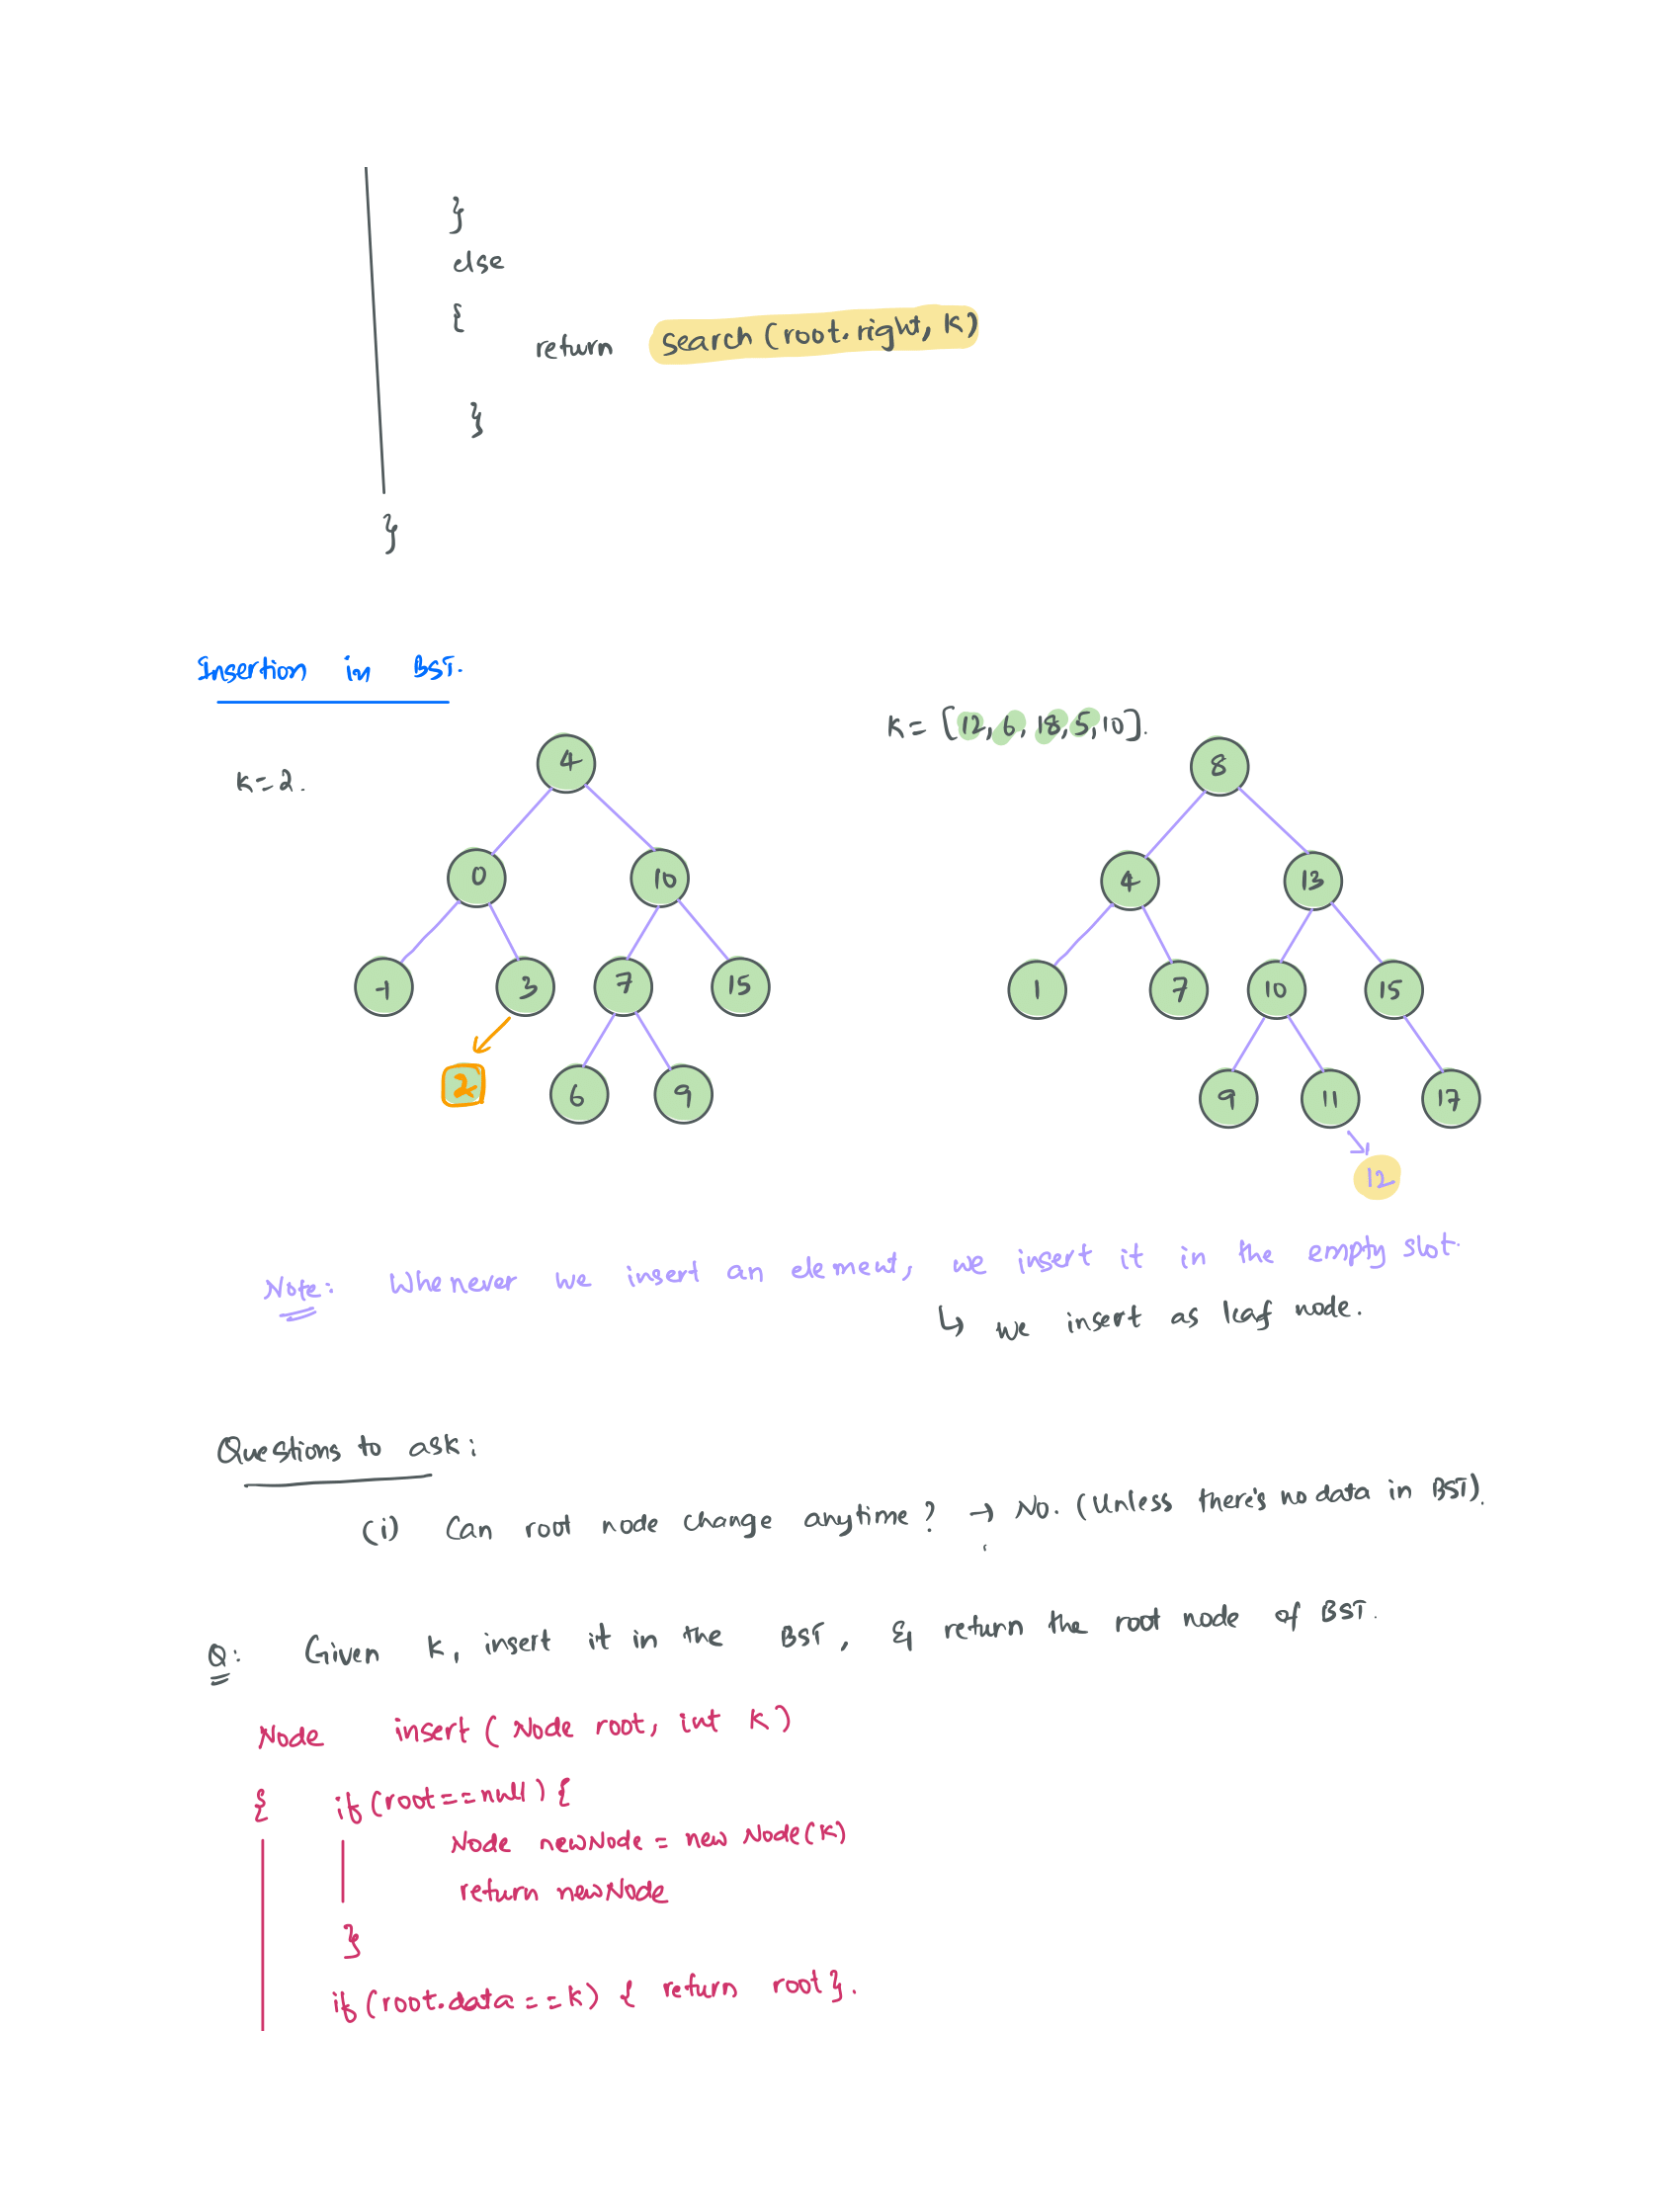 }
else
{
return search(root.right, K)
}
}
Insertion in BST.
K = [12, 6, 18, 5, 10].
K = 2.
4
8
0 10
4 13
-1 3 7 15
1 7 10 15
2 6 9
9 11 17
12
Note: Whenever we insert an element, we insert it in the empty slot.
↳ we insert as leaf node.
Questions to ask:
(i) Can root node change anytime? → No. (Unless there's no data in BST).
Q: Given K, insert it in the BST, & return the root node of BST.
Node insert (Node root, int K)
{ if (root==null) {
Node newNode = new Node(K)
return newNode
}
if (root.data==K) { return root}.